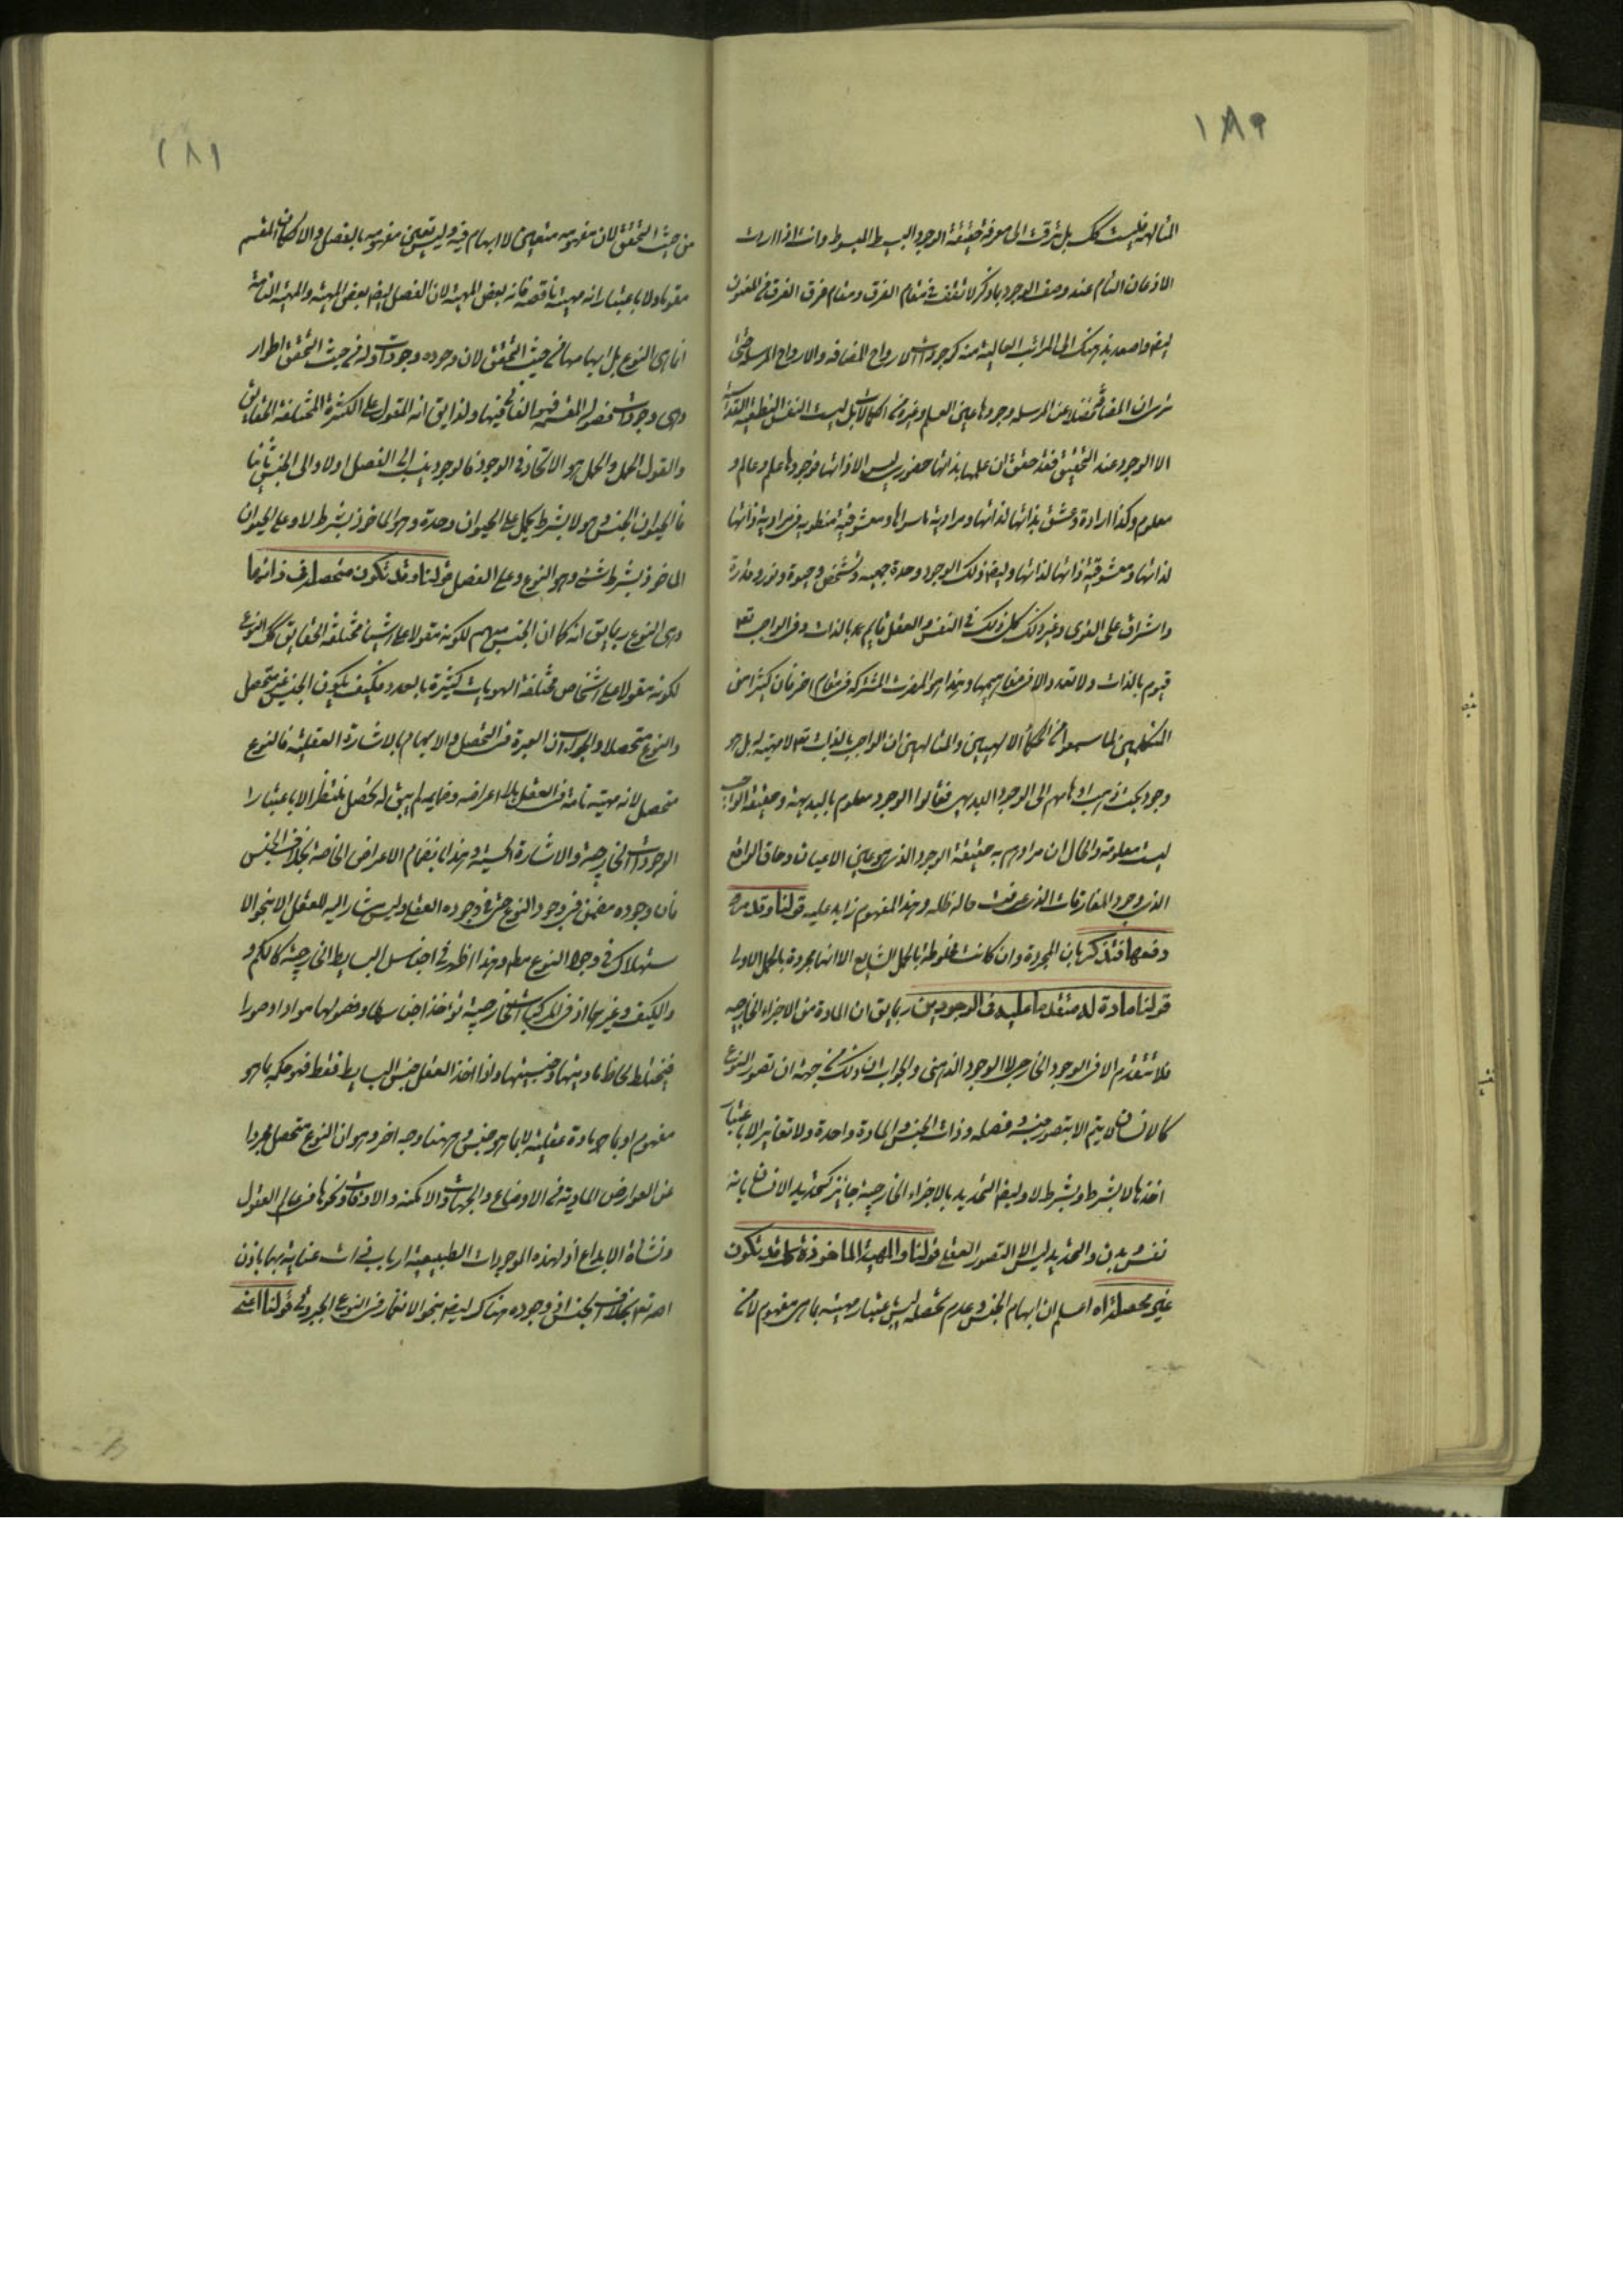 ١٨٠
المتالهة فليست كك بل ترقت الى معرفة حقيقة الوجود البسيط المبسوط وانت اذا اردت
الاذعان التام عند وصف الوجود بما ذكر لا تقف في مقام الفرق ومقام فرق الفرق من الفنون
ايضا واصعد بذهنك الى المراتب العالية منه كوجودات الارواح المضافة والارواح المرسلة حتى
ترى ان المضافة فضلا عن المرسلة وجودها عين العلم وغيره من الكمالات بل ليست النفس النطقية القدسية
الا الوجود عند التحقيق فقد حقق ان علمها بذاتها حضوري ليس الا ذاتها فوجودها علم وعالم و
معلوم وكذا ارادة وعشق بذاتها لذاتها ومرادية ما سواها ومعشوقيته منطوية في مرادية ذاتها
لذاتها ومعشوقية ذاتها لذاتها وايضا ذلك الوجود وحدة جمعية وتشخص وحيوة ونور وقدرة
واشراق على القوى وغير ذلك كل ذلك في النفس والعقل قايم بالذات وفي الواجب تع
قيوم بالذات ولا تعدد الا في مفاهيمها وهذا هو المفرق المشترك في مقام اخر فان كثيرا من
المتكلمين لما سمعوا من الحكماء الالهيين والمتالهين ان الواجب بالذات تع لا مهية له بل هو
وجود بحت ذهب اوهامهم الى الوجود البديهي فقالوا الوجود معلوم بالبديهة وحقيقة الواجب
ليست معلومة والحال ان مرادهم به حقيقة الوجود الذي هو عين الاعيان وحاق الواقع
الذي وجود المفارقات الذي عرفت حاله ظله وهذا المفهوم زايد عليه قولنا وقد مر
دفعها فتذكر بان المجردة وان كانت مخلوطة بالحمل الشايع الا انها مجردة بالحمل الاولى
قولنا مادة له متقدما عليه في الوجودين ربما يق ان المادة من الاجزاء الخارجية
فلا تتقدم الا في الوجود الخارجي لا الوجود الذهني والجواب ان ذلك من جهة ان تصور النوع
كالانسان لا يتم الا بتصور جنسه وفصله وذات الجنس والمادة واحدة ولا تغاير الا باعتبار
اخذها لا بشرط وبشرط لا وايضا التحديد بالاجزاء الخارجية جايز كتحديد الانسان بانه
نفس وبدن والتحديد ليس الا التصور العقلي قولنا والمهية الماخوذة كك قد تكون
غير محصلة اه اعلم ان ابهام الجنس وعدم تحصله ليس باعتبار مهية بما هي مفهوم لا من
١٨١
من حيث التحقق لان مفهومه متعين لا ابهام فيه وليس تعين مفهومه بالفصل والا لكان المقسم
مقوما ولا باعتبار انه مهية ناقصة فانه بعض المهية لان الفصل ايضا بعض المهية والمهية التامة
انما هي النوع بل ابهامها من حيث التحقق لان وجوده وجودات وله من حيث التحقق اطوار
وهي وجودات فصوله المقسمة فهو الفاني فيها ولذا يق انه المقول على الكثرة المختلفة الحقايق
والقول الحمل والحمل هو الاتحاد في الوجود فالوجود ينسب الى الفصل اولا والى الجنس ثانيا
فالحيوان الجنس وهو لا بشرط يحمل على الحيوان وحده وهو الماخوذ بشرط لا وعلى الحيوان
الماخوذ بشرط شئ وهو النوع وعلى الفصل قولنا وقد تكون متحصلة في ذاتها
وهي النوع ربما يق انه كما ان الجنس مبهم لكونه مقولا على اشياء مختلفة الحقايق كك النوع
لكونه مقولا على اشخاص مختلفة الهويات كثيرة بالعدد فكيف يكون الجنس غير متحصل
والنوع متحصلا والجواب ان العبرة في التحصل والابهام بالاشارة العقلية فالنوع
متحصل لانه مهية تامة في العقل اعراضه وخاصته لم يبق له تحصل منتظر الا باعتبار
الوجودات الخارجية والاشارة الحسية وهذا بانضمام الاعراض الخاصة بخلاف الجنس
فان وجوده مضمن في وجود النوع حتى في وجوده العقلي وليس مشار اليه للعقل الا بنحو الا
ستهلاك في وجود النوع مطم وهذا اظهر في اجناس البسايط الخارجية كالكم و
والكيف وغيرهما اذ في المركبات الخارجية تؤخذ اجناسها وفصولها موادا وصورا
فيختلط لحاظ ماديتها وجنسيتها واذا اخذ العقل جنس البسايط فقط فهو حكمه بما هو
مفهوم او بما هو مادة عقلية لا بما هو جنس وههنا وجه اخر وهو ان النوع متحصل مجردا
عن العوارض المادية من الاوضاع والجهات والامكنة والاوقات ونحوها في عالم العقول
ونشأة الابداع اذ لهذه الموجودات الطبيعية ارباب ذات عناية بها باذن
الله تع بخلاف الجنس اذ وجوده هناك ايضا بنحو الانغمار في النوع الجبروتي قولنا اعنى